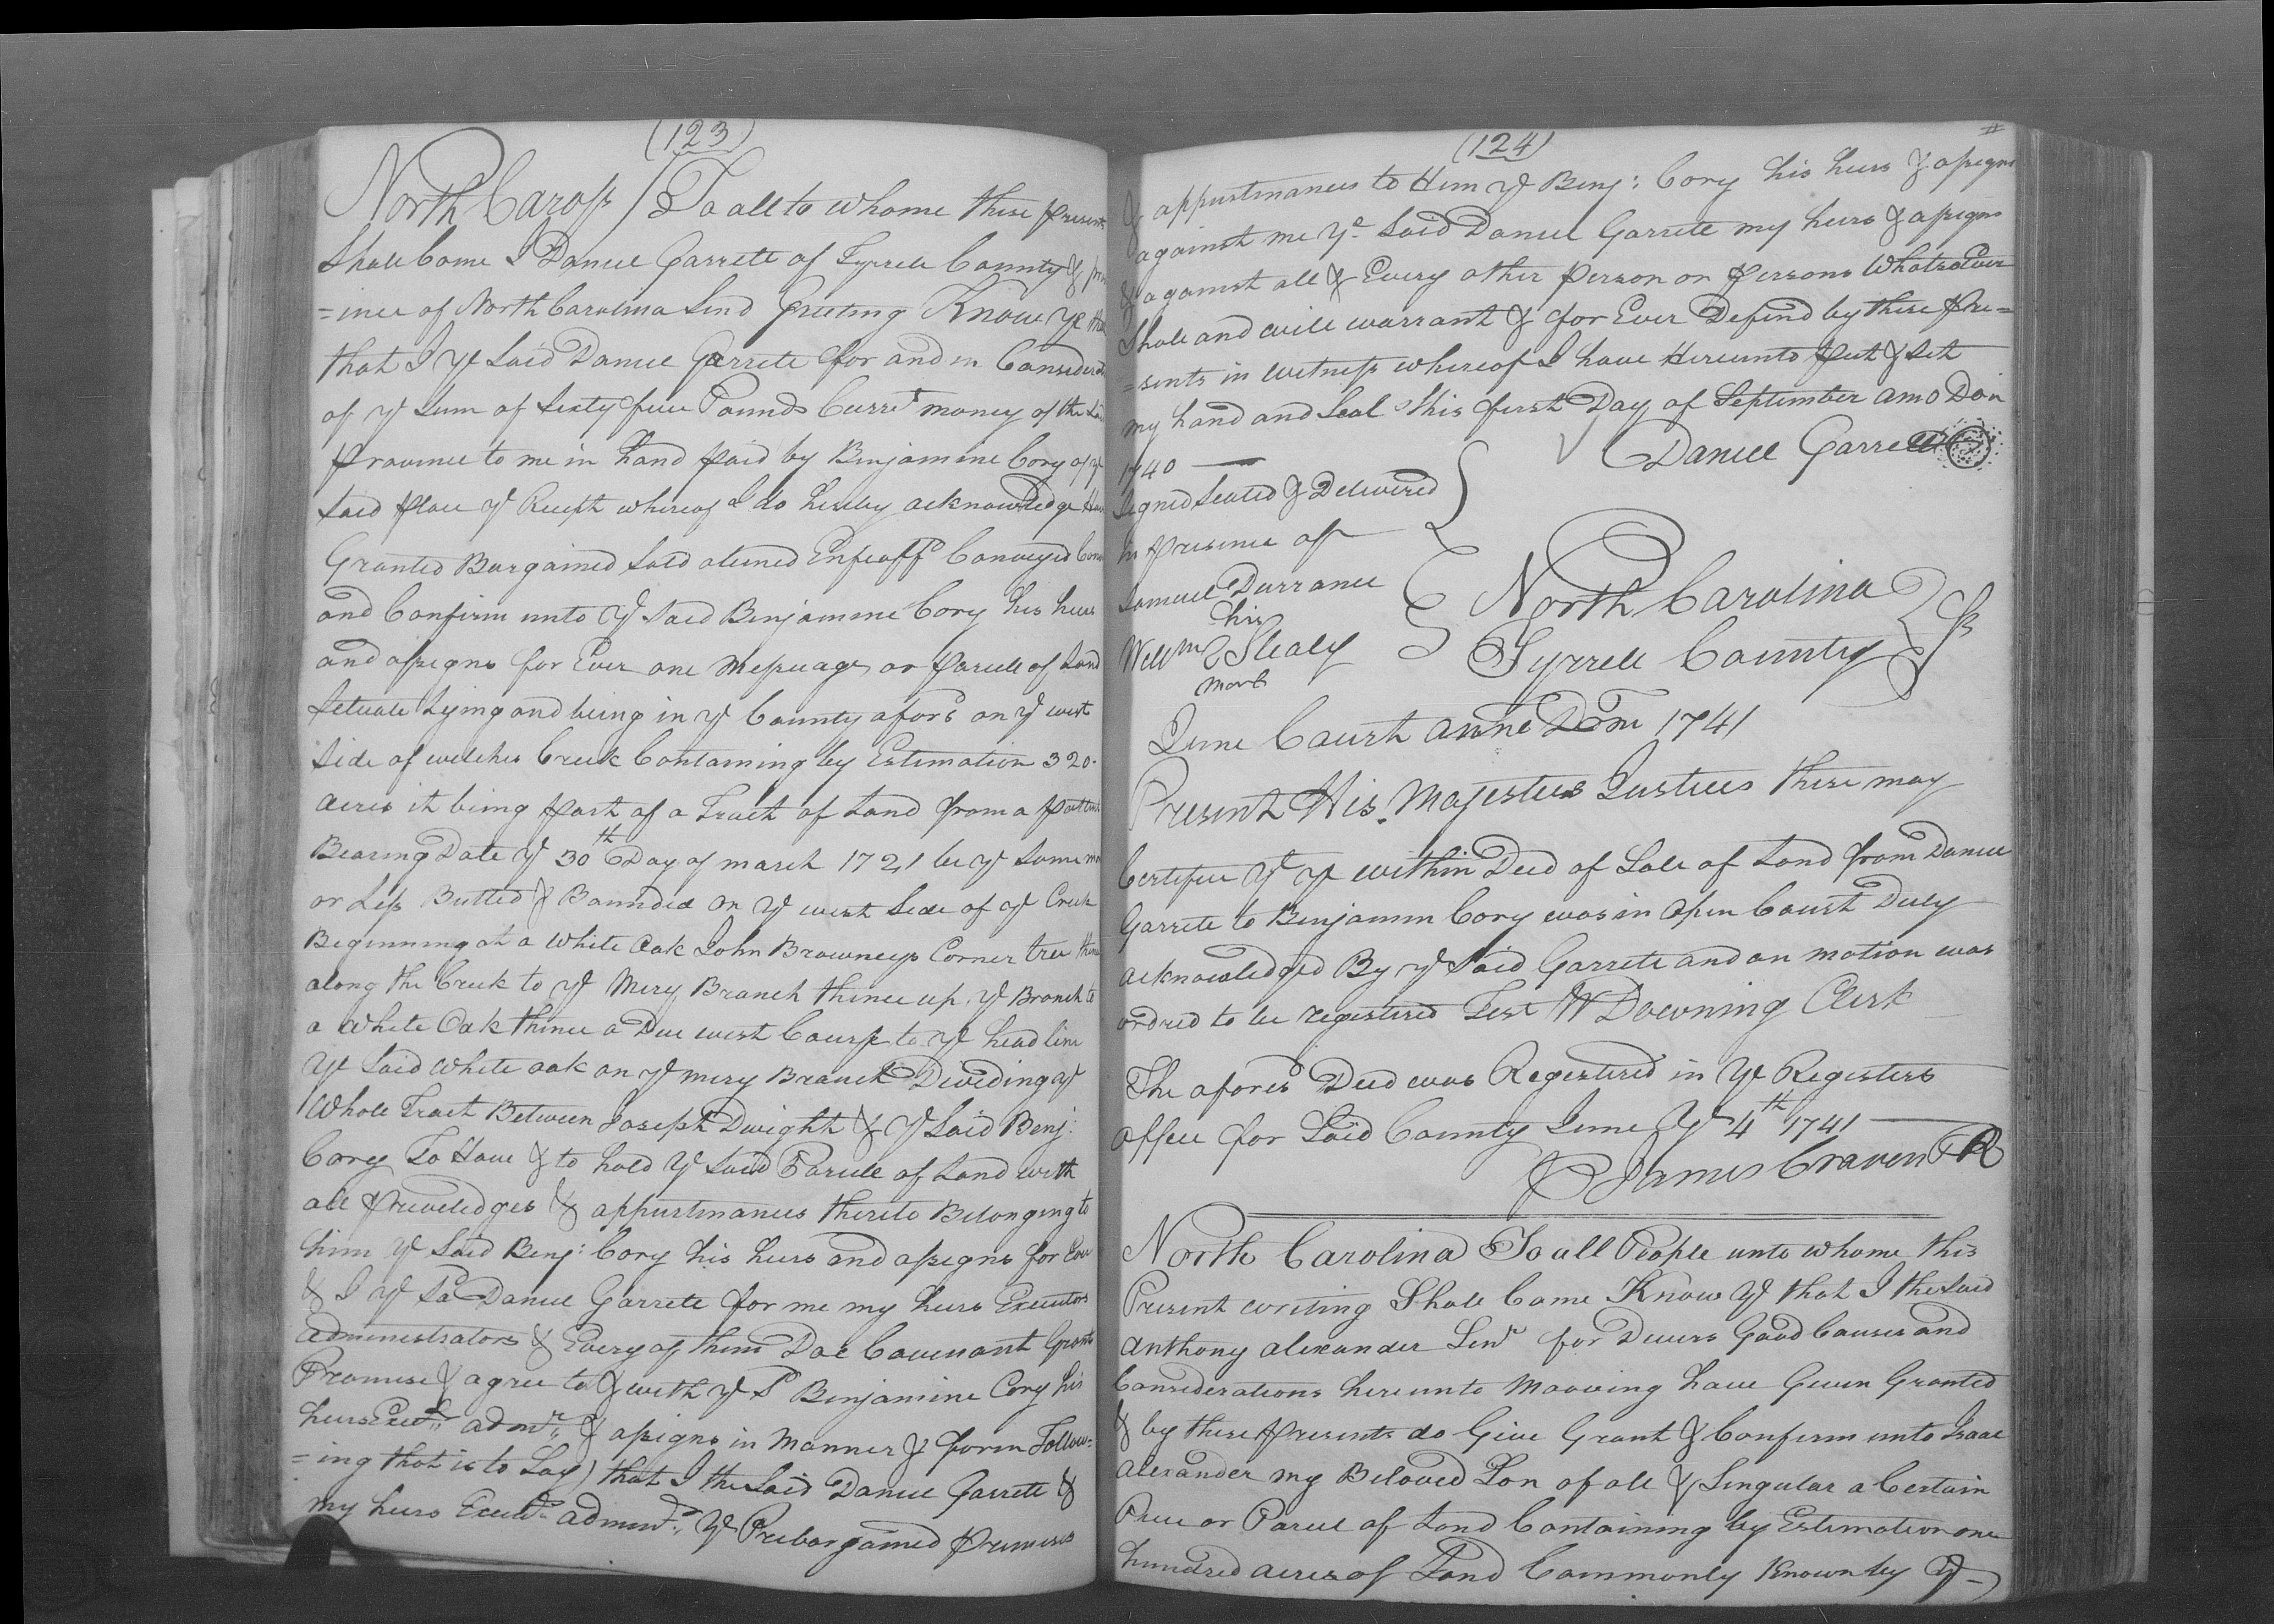 (123)
North Caro ss / To all to whome these presents
Shall Come I Daniel Garrett of Tyrrell County &
=ince of North Carolina Send Greeting Know Ye
that I ye Said Daniel Garrett for and in Considerat
of ye Sum of Sixty five Pounds Currt money of the Said
province to me in hand paid by Benjamine Cory of ye
Said place ye Receipt whereof I do hereby acknowledge Have
Granted Bargained Sold aliened Enfeoffd Conveyed
and Confirm unto ye Said Benjamine Cory his heirs
and assigns for Ever one messuage or parcell of Land
Situate Lying and being in ye County afors on ye west
Side of welches Creek Containing by Estimation 320.
acres it being part of a Tract of Land from a pattent
Bearing Date ye 30th Day of march 1721 be ye Same more
or Less Butted & Bounded on ye west Side of ye Creek
Beginning at a White Oak John Browneys Corner tree thence
along the Creek to ye Miry Branch thence up ye Branch to
a White Oak thence a Due west Course to ye head line
ye Said White oak on ye miry Branch Divideing ye
Whole Tract Between Joseph Dwight & ye Said Benj:
Cory To Have & to hold ye Said Parcell of Land with
all priveledges & appurtinances thereto Belonging to
him ye Said Benj: Cory his heirs and assigns for Ever
& I ye Sd Daniel Garrett for me my heirs Executors
administrators & Every of them Doe Covenant Grant
Promise & agree to & with ye Sd Benjamine Cory his
heirs Exectrs admrs & assigns in Manner & form Follow=
=ing that is to Say) that I the Said Daniel Garrett &
my heirs Exectrs admintrs ye Prebargained premises
(124)
& appurtinances to Him ye Benj: Cory his heirs & assigns
against me ye Said Daniel Garrett my heirs & assigns
& against all & Every other person or persons Whatsoever
Shall and will warrant & for Ever Defend by these Pre=
=sents in witness whereof I have Hereunto put & Set
my hand and Seal this first Day of September anno Dom
1740 Daniel Garrett
Signed Sealed & Delivered
in presence off
Samuel Durrance
his
Willm Slealy
mark
North Carolina
Tyrrell County ss
June Court anne Dom 1741
Present His Majesties Justices these may
Certifie yt ye within Deed of Sale of Land from Daniel
Garrett to Benjamin Cory was in Open Court Duly
acknowledged By ye Said Garrett and on motion was
ordred to be registered Test W Downing Clerk
The afores Deed was Registered in ye Registers
office for Said County June ye 4th 1741
P James Craven R
North Carolina To all People unto whome this
Present writing Shall Come Know ye that I the Said
Anthony alexander Senr for Divers Good Causes and
Considerations hereunto Mooving have Given Granted
& by these presents do Give Grant & Confirm unto Isaac
alexander my Beloved Son of all & Singular a Certain
Piece or Parcel of Land Containing by Estimation one
hundred acres of Land Commonly Known by ye